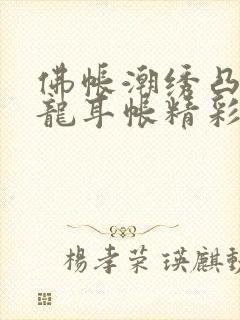 佛帳潮绣凸
龍耳帐精彩
楊孝荣 瑛麒